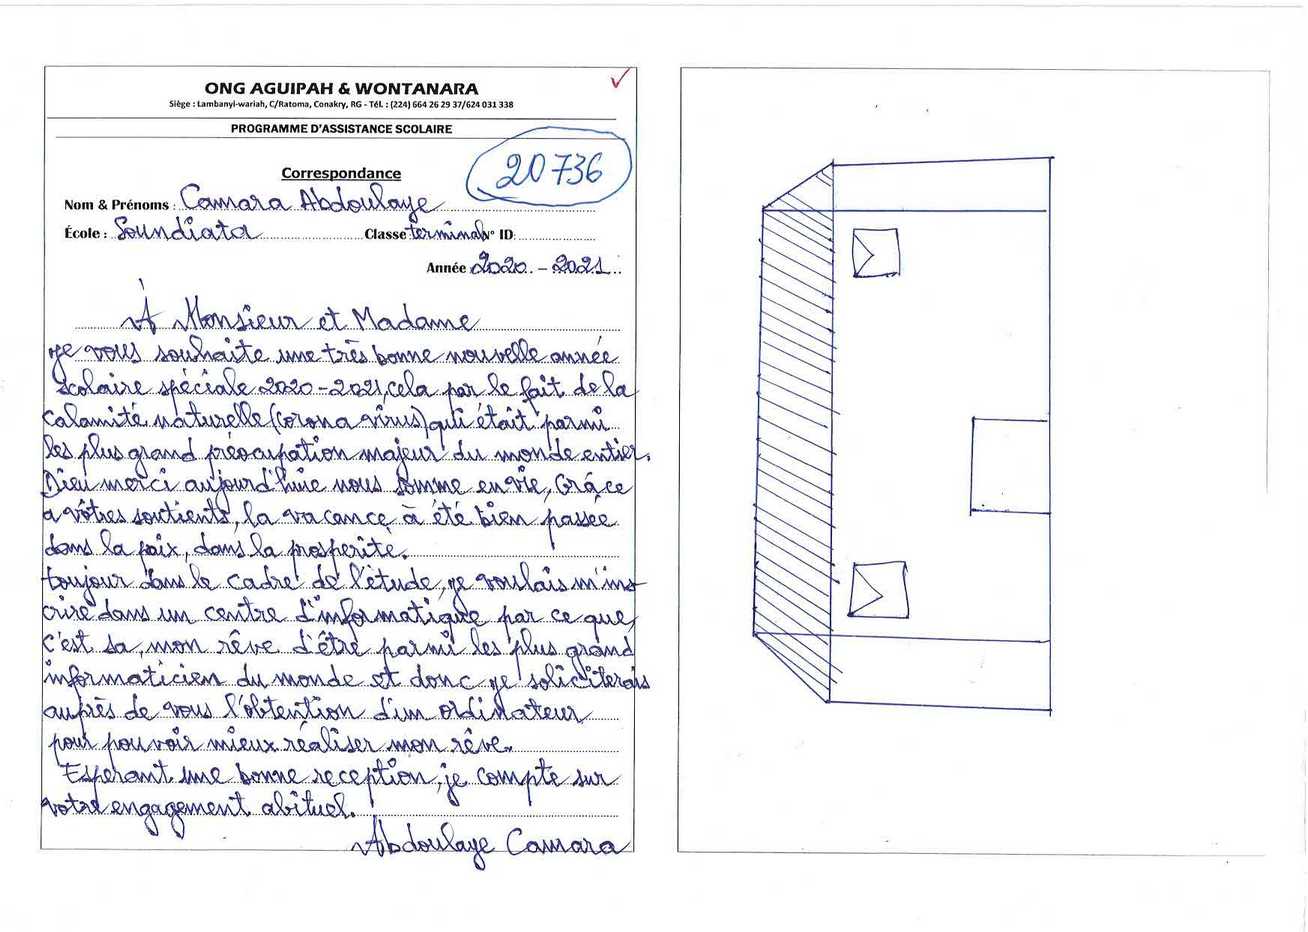 ONG AGUIPAH & WONTANARA
Siège : Lambanyi-wariah, C/Ratoma, Conakry, RG - Tél. : (224) 664 26 29 37/624 031 338
PROGRAMME D'ASSISTANCE SCOLAIRE
20736
Correspondance
Nom & Prénoms : Camara Abdoulaye
École : Soundiata Classe terminal N° ID:
Année 2020 - 2021
À Monsieur et Madame
Je vous souhaite une très bonne nouvelle année
scolaire spéciale 2020-2021, cela par le fait de la
calamité naturelle (Corona virus) qui était parmi
les plus grand préocupation majeur du monde entier.
Dieu merci aujourd'huie nous somme en vie, Grâce
a vôtres soutients, la vacance à été bien passée
dans la paix, dans la prosperité.
toujour dans le cadre de l'étude, je voulais m'ins-
crire dans un centre d'informatique par ce que,
c'est sa, mon rêve d'être parmi les plus grand
informaticien du monde et donc je soliciterais
auprès de vous l'obtention d'un ordinateur
pour pouvoir mieux réaliser mon rêve.
Esperant une bonne reception, je compte sur
votre engagement abituel.
Abdoulaye Camara